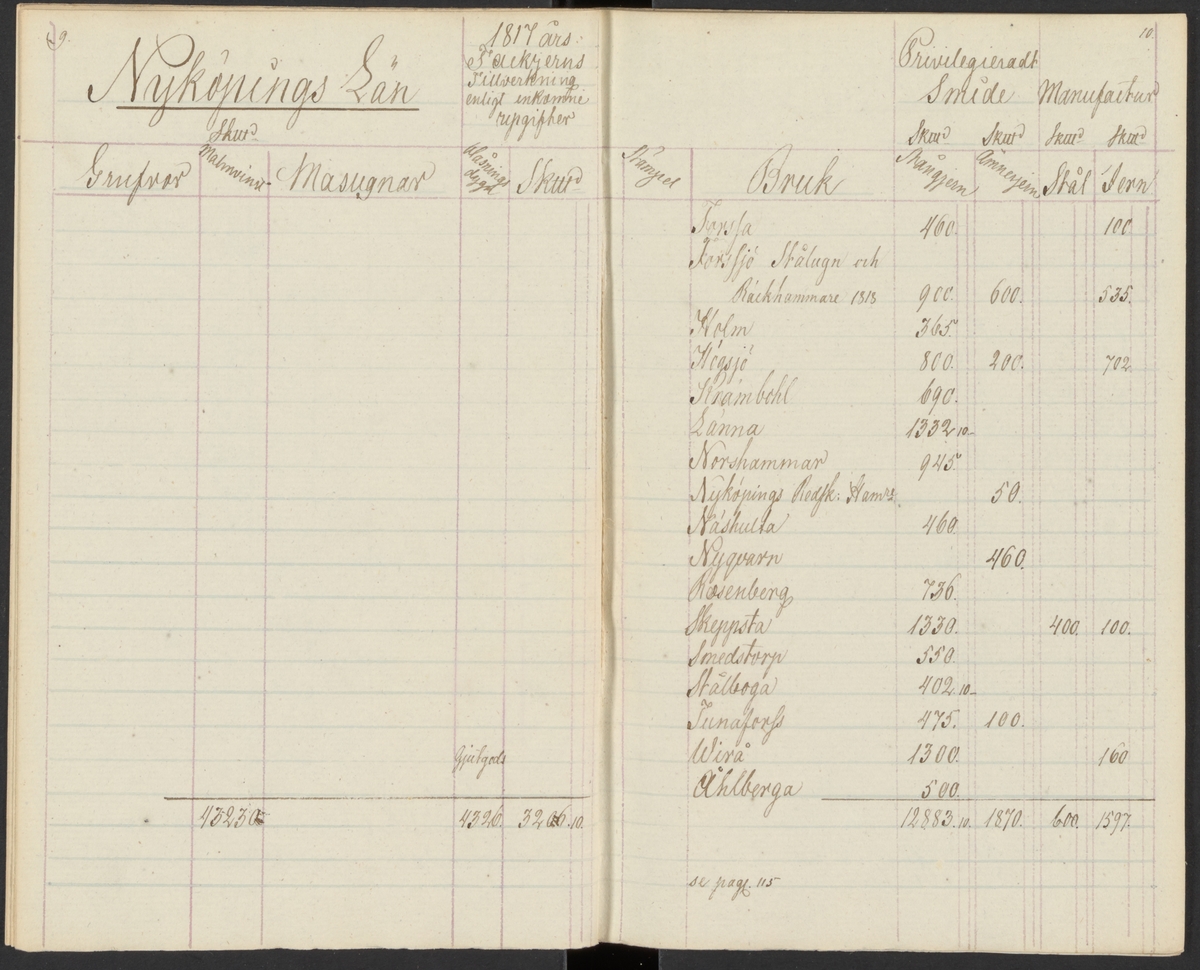 9.
Nyköpings Län
1817 års
Tackjerns
Tillverkning
enligt inkomne
upgifter
Skud
Grufvor Malmvinst Masugnar Blåsnings dygn Skud
Gjutgods
43230 4326 3206.10.
10.
Privilegieradt
Smide Manufactur
Skud Skud Skud Skud
Stämpel Bruk Stångjern Ämnesjern Stål Jern
Forssa 460. 100
Forssjö Stålugn och
Räckhammare 1818 900. 600. 535.
Holm 365.
Högsjö 800. 200. 702.
Kråmbohl 690.
Länna 1332 10.
Norshammar 945.
Nyköpings Redsk: Hamr 50.
Näshulta 460.
Nyqvarn 460.
Rosenberg 736.
Skeppsta 1330. 400. 100.
Smedstorp 550.
Stålboga 402 10.
Tunaforss 475. 100.
Wirå 1300. 160
Åhlberga 500.
12883.10. 1870. 600. 1597.
se pag. 115